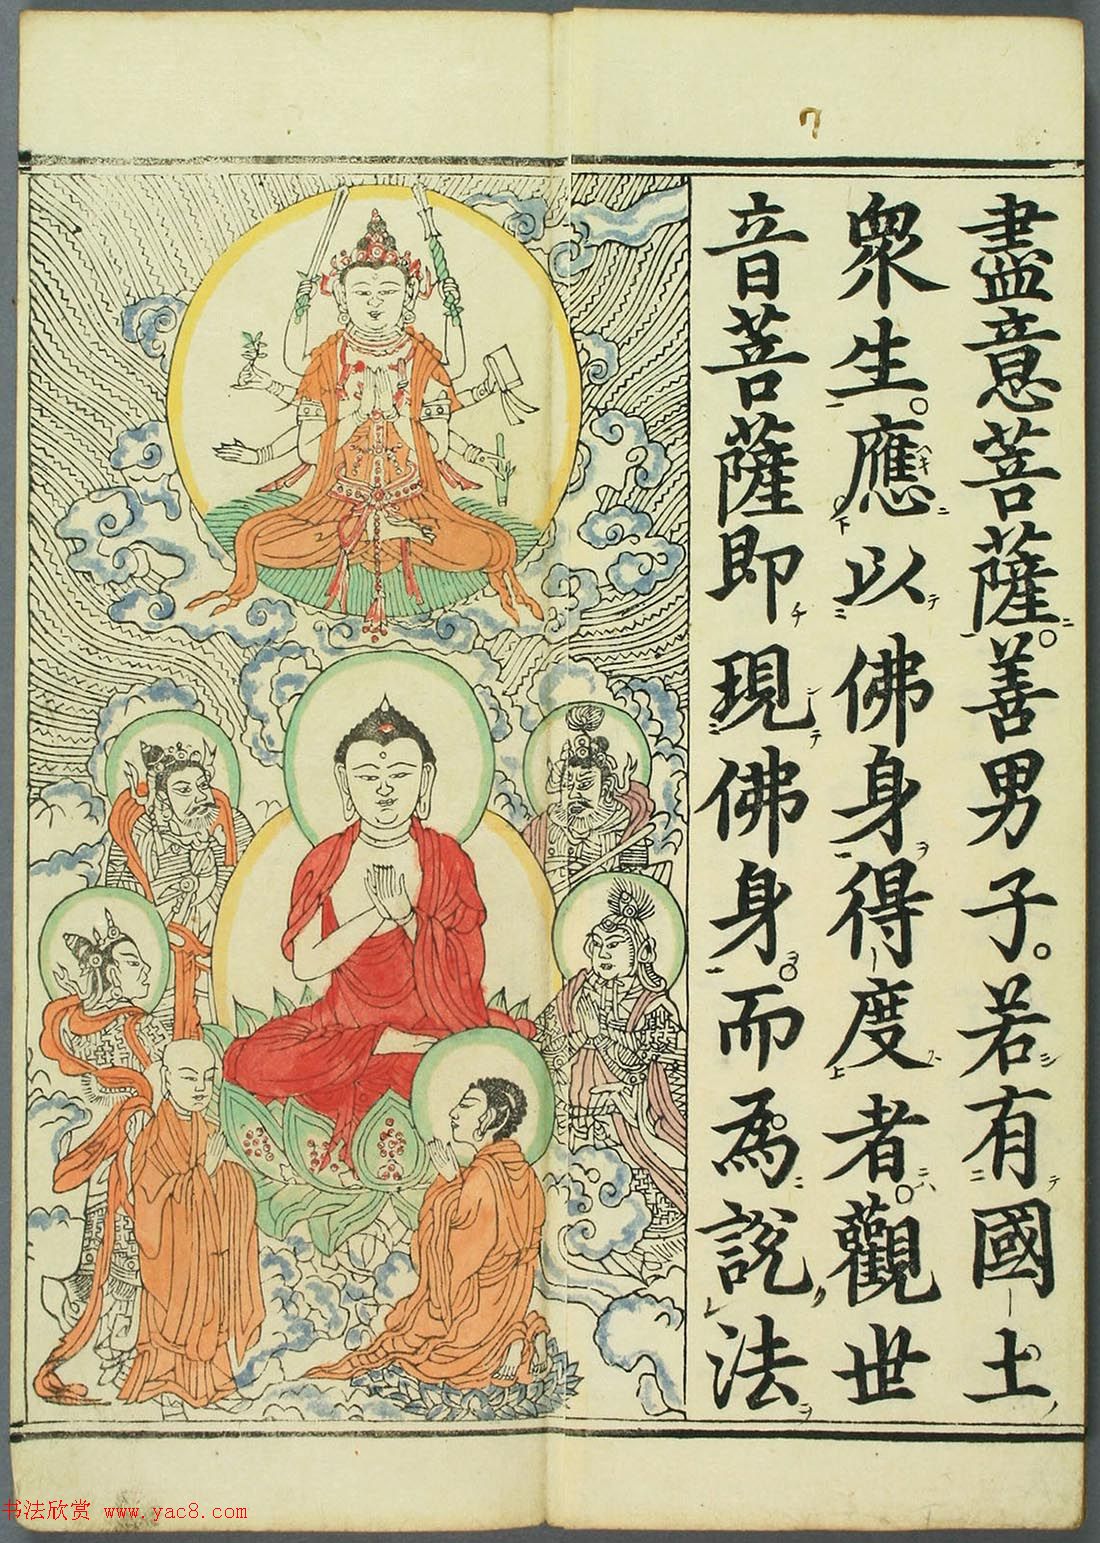 盡意菩薩。善男子。若有國土
衆生。應以佛身得度者。觀世
音菩薩即現佛身。而為說法
书法欣赏 www.yac8.com